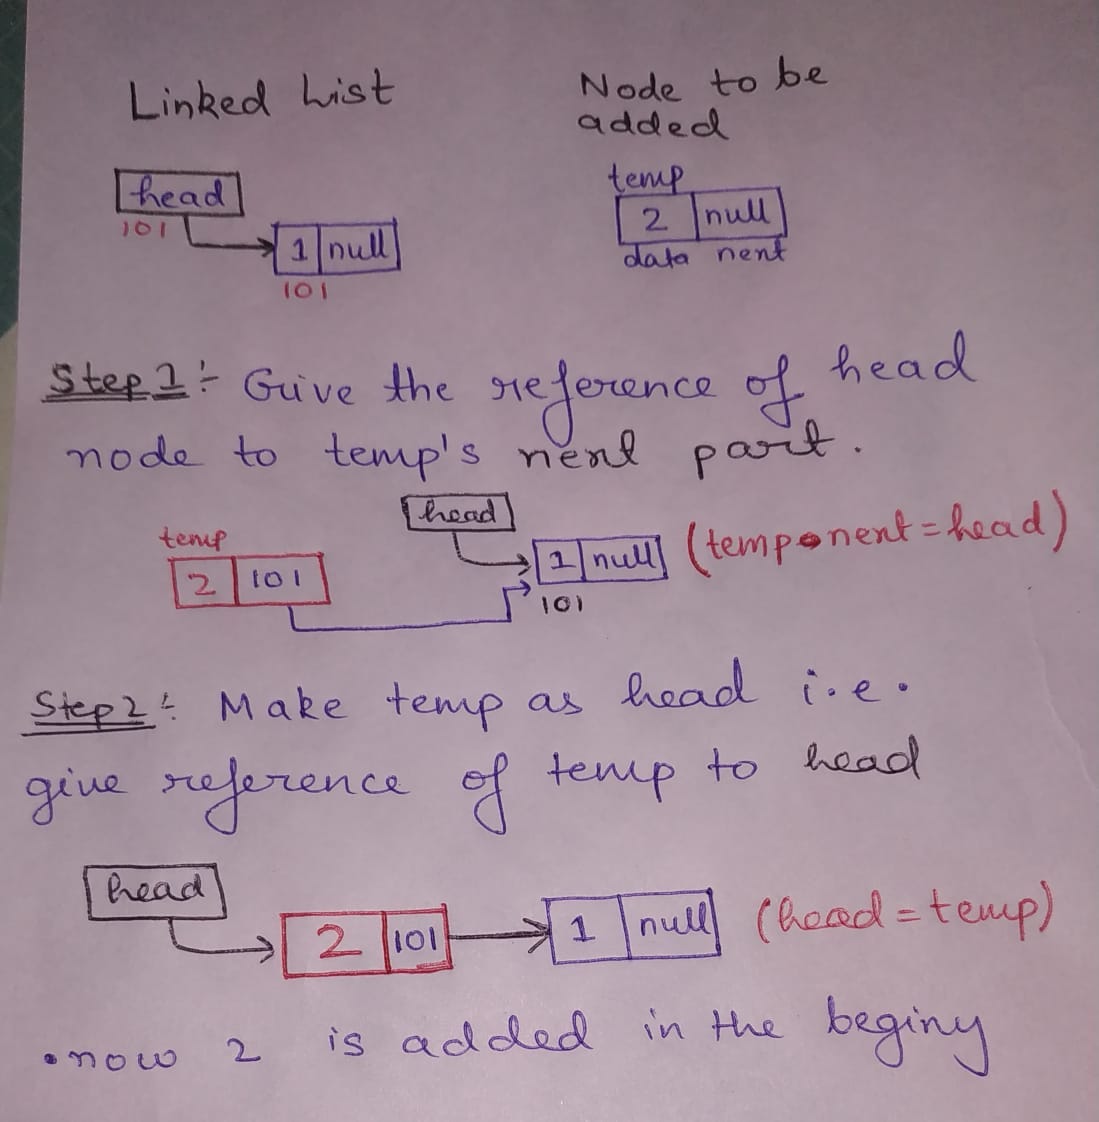 Linked List
Node to be
added
head
101
1 null
101
temp
2 null
data next
Step 1 :- Give the reference of head
node to temp's next part.
head
temp
2 101
1 null
101
(temp.next = head)
Step 2 :- Make temp as head i.e.
give reference of temp to head
head
2 101
1 null
(head = temp)
• now 2 is added in the beginy